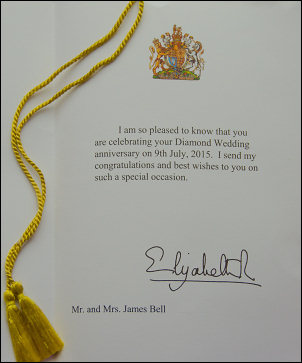 I am so pleased to know that you
are celebrating your Diamond Wedding
anniversary on 9th July, 2015. I send my
congratulations and best wishes to you on
such a special occasion.
Elizabeth R
Mr. and Mrs. James Bell